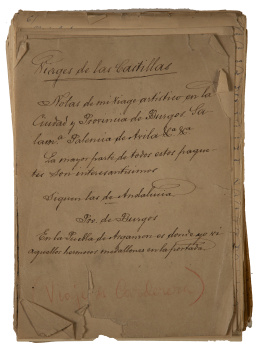 Viages de las Castillas
Notas de mi viage artístico en la
Ciudad y Provincia de Burgos Sa-
lamca Palencia de Avila &a &a
La mayor parte de todos estos paque-
tes son interesantisimos
Siguen las de Andalucia
Pro. de Burgos
En la Puebla de Arganzon es donde yo vi
aquellos hermosos medallones en la portada